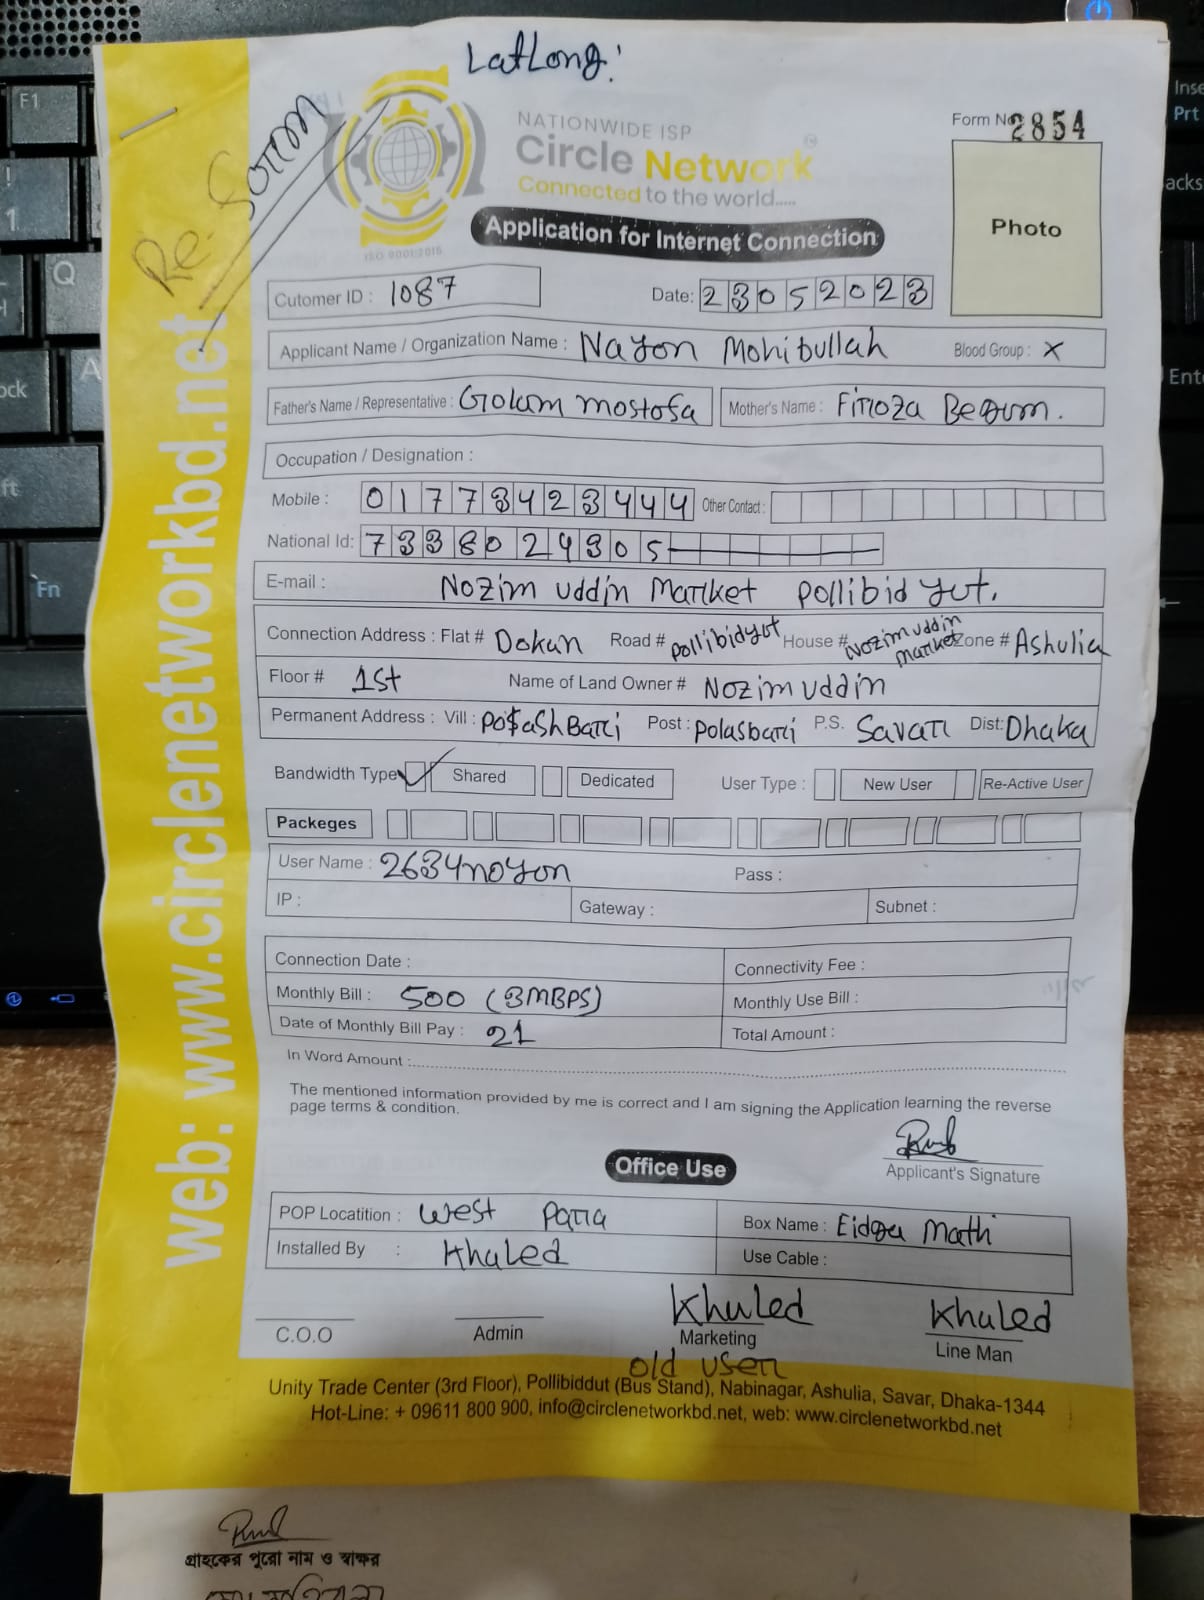 LatLong:
Re-Sotton
NATIONWIDE ISP
Circle Network
Connected to the world.....
ISO 9001:2015
Form No 2854
Photo
Application for Internet Connection
Cutomer ID : 1087
Date: 23052023
Applicant Name / Organization Name : Nayon Mohibullah Blood Group : X
Father's Name / Representative : Golam mostofa Mother's Name : Firoza Begum.
Occupation / Designation :
Mobile : 01773423444 Other Contact :
National Id: 7338024305
E-mail : Nozim uddin Market pollibidyut.
Connection Address : Flat # Dokan Road # pollibidyut House # Nozimuddin market Zone # Ashulia
Floor # 1st Name of Land Owner # Nozim uddin
Permanent Address : Vill : PolashBari Post : polasbari P.S. Savar Dist: Dhaka
Bandwidth Type Shared Dedicated User Type : New User Re-Active User
Packeges
User Name : 2634noyon Pass :
IP : Gateway : Subnet :
Connection Date : Connectivity Fee :
Monthly Bill : 500 (3MBPS) Monthly Use Bill :
Date of Monthly Bill Pay : 21 Total Amount :
In Word Amount :
The mentioned information provided by me is correct and I am signing the Application learning the reverse
page terms & condition.
Applicant's Signature
Office Use
POP Locatition : West para Box Name : Eidga Math
Installed By : Khaled Use Cable :
Khaled Khaled
C.O.O Admin Marketing Line Man
old user
Unity Trade Center (3rd Floor), Pollibiddut (Bus Stand), Nabinagar, Ashulia, Savar, Dhaka-1344
Hot-Line: + 09611 800 900, info@circlenetworkbd.net, web: www.circlenetworkbd.net
web: www.circlenetworkbd.net
গ্রাহকের পুরো নাম ও স্বাক্ষর
F1
Q
A
Fn
Prt